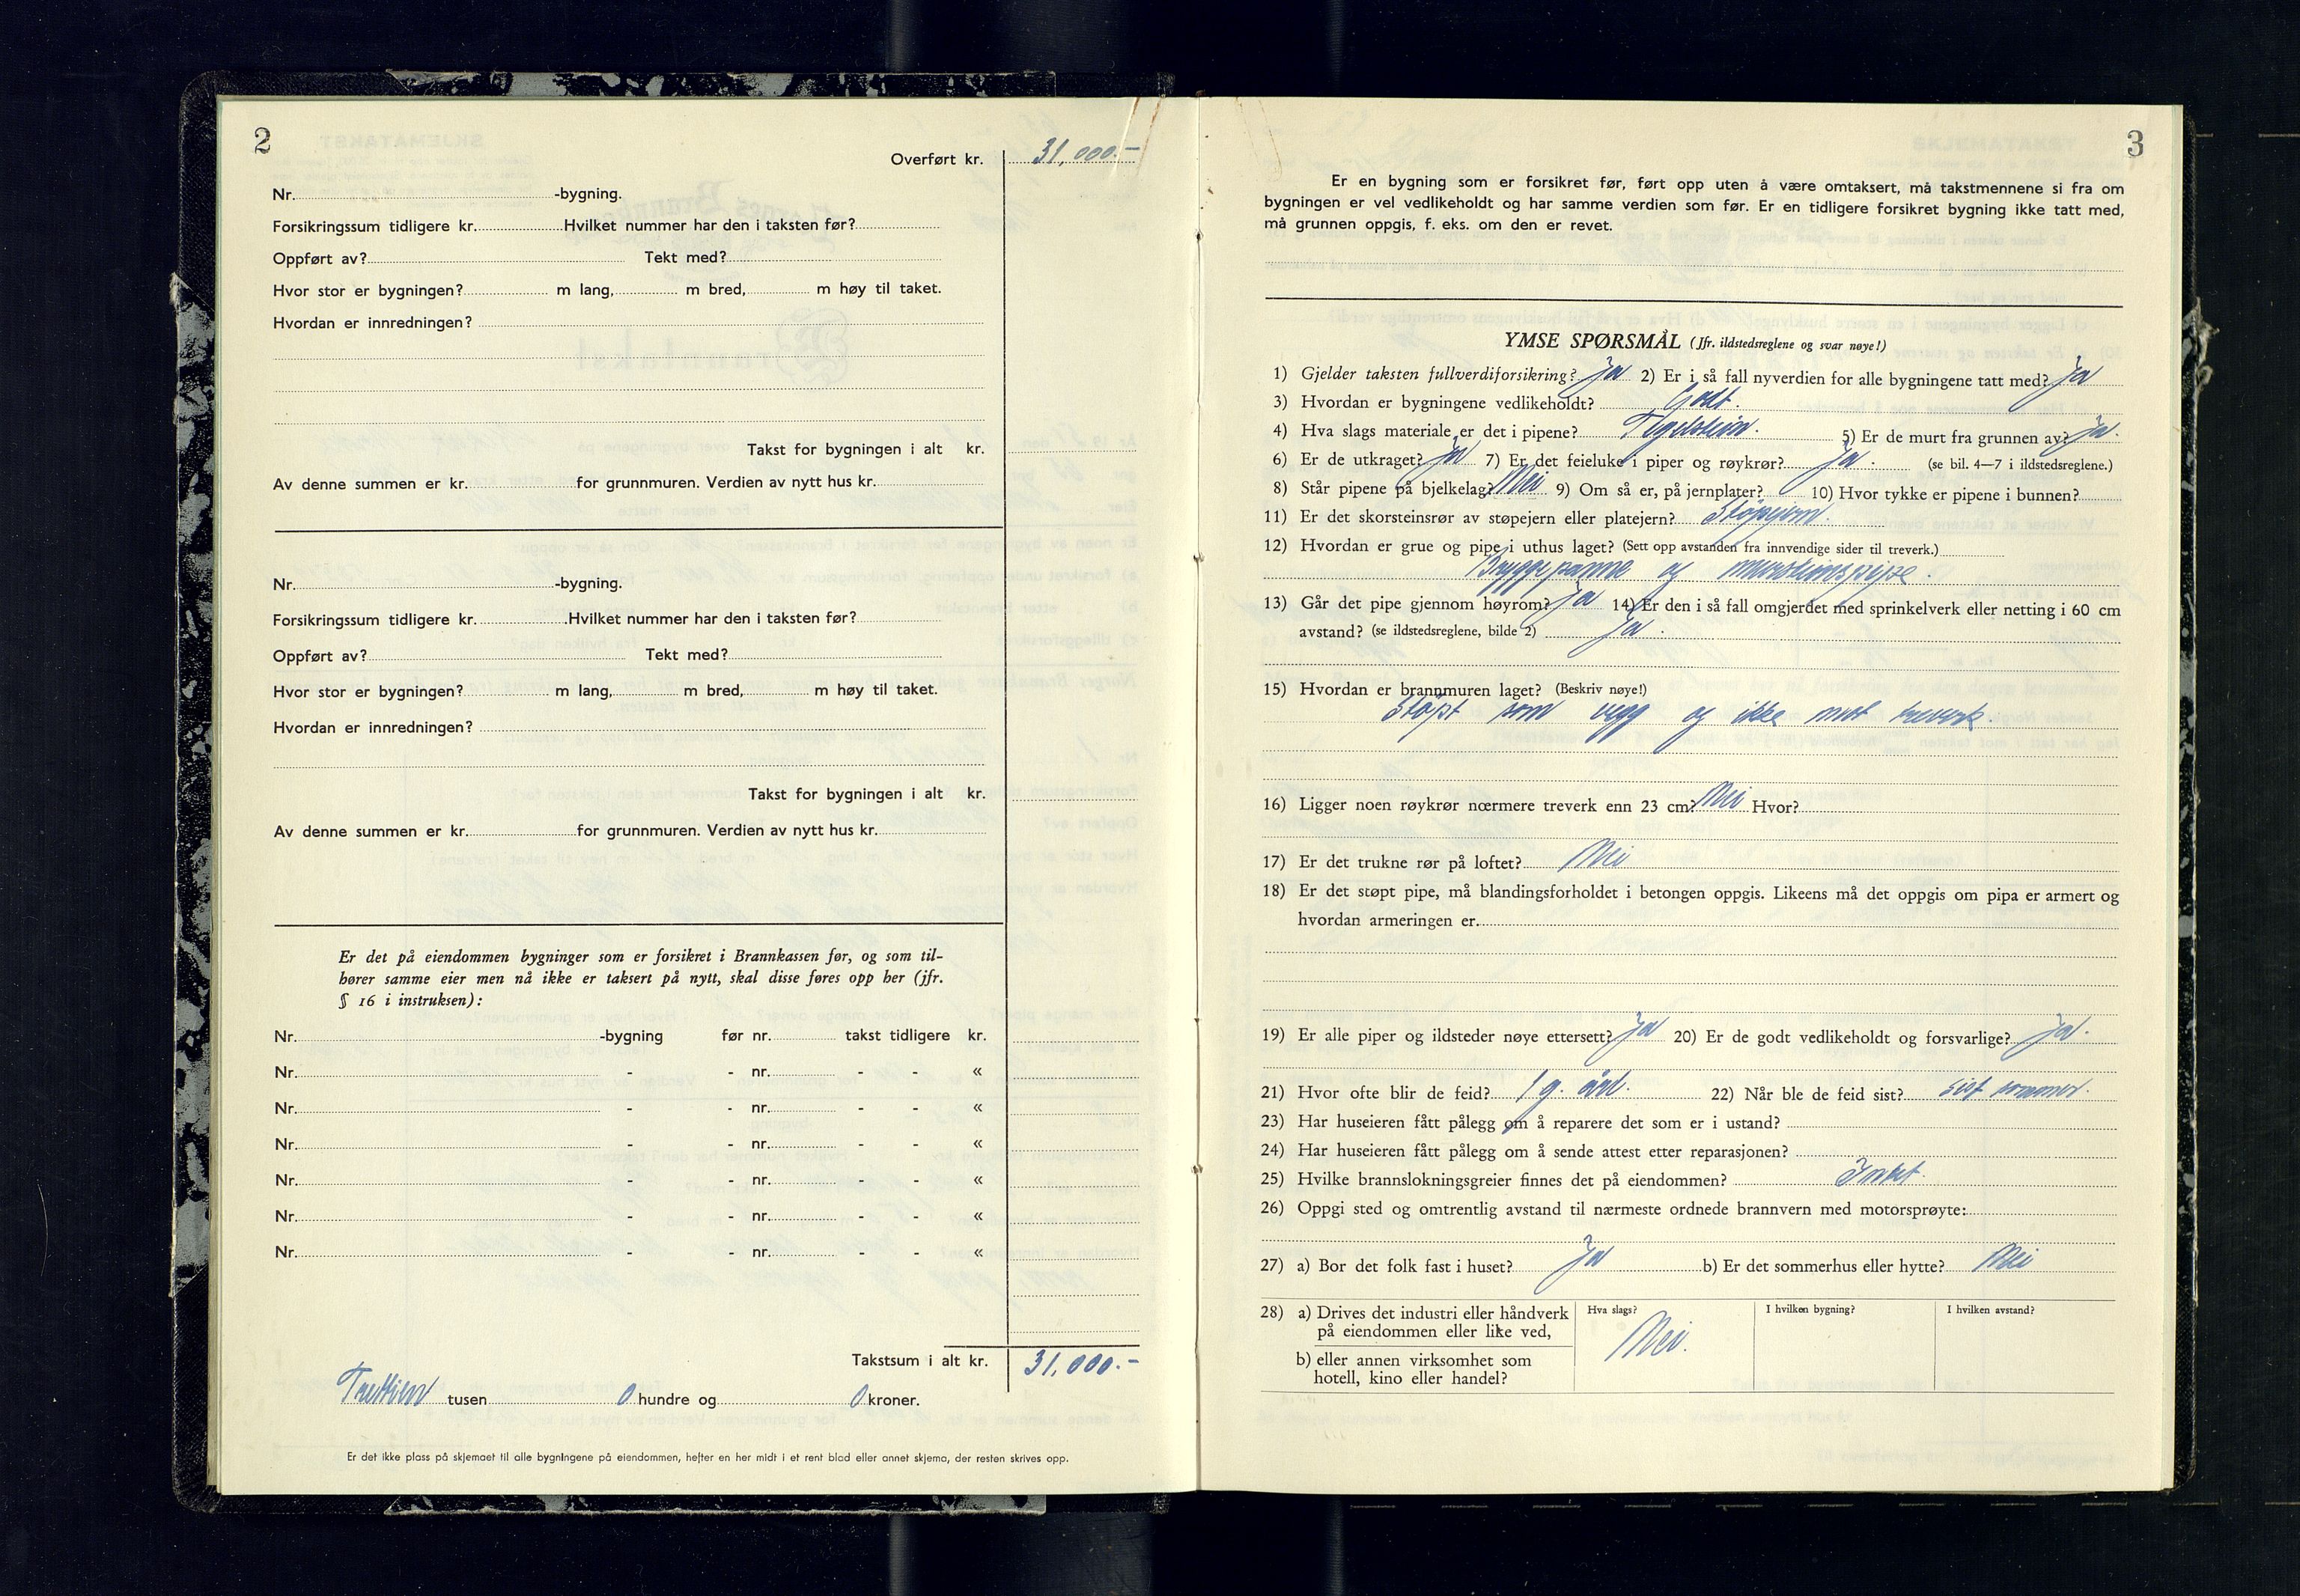 2
Overført kr. 31,000.-
Nr. -bygning.
Forsikringssum tidligere kr. Hvilket nummer har den i taksten før?
Oppført av? Tekt med?
Hvor stor er bygningen? m lang, m bred, m høy til taket.
Hvordan er innredningen?
Takst for bygningen i alt kr.
Av denne summen er kr. for grunnmuren. Verdien av nytt hus kr.
Nr. -bygning.
Forsikringssum tidligere kr. Hvilket nummer har den i taksten før?
Oppført av? Tekt med?
Hvor stor er bygningen? m lang, m bred, m høy til taket.
Hvordan er innredningen?
Takst for bygningen i alt kr.
Av denne summen er kr. for grunnmuren. Verdien av nytt hus kr.
Er det på eiendommen bygninger som er forsikret i Brannkassen før, og som til-
hører samme eier men nå ikke er taksert på nytt, skal disse føres opp her (jfr.
§ 16 i instruksen):
Nr. -bygning før nr. takst tidligere kr.
Nr. - - nr. - - «
Nr. - - nr. - - «
Nr. - - nr. - - «
Nr. - - nr. - - «
Nr. - - nr. - - «
Nr. - - nr. - - «
Takstsum i alt kr. 31,000.-
tusen 0 hundre og 0 kroner.
Er det ikke plass på skjemaet til alle bygningene på eiendommen, hefter en her midt i et rent blad eller annet skjema, der resten skrives opp.
3
Er en bygning som er forsikret før, ført opp uten å være omtaksert, må takstmennene si fra om
bygningen er vel vedlikeholdt og har samme verdien som før. Er en tidligere forsikret bygning ikke tatt med,
må grunnen oppgis, f. eks. om den er revet.
YMSE SPØRSMÅL (Jfr. ildstedsreglene og svar nøye!)
1) Gjelder taksten fullverdiforsikring? Ja 2) Er i så fall nyverdien for alle bygningene tatt med? Ja
3) Hvordan er bygningene vedlikeholdt? Godt.
4) Hva slags materiale er det i pipene? Teglstein. 5) Er de murt fra grunnen av? Ja.
6) Er de utkraget? Ja 7) Er det feieluke i piper og røykrør? Ja. (se bil. 4—7 i ildstedsreglene.)
8) Står pipene på bjelkelag? Nei 9) Om så er, på jernplater? 10) Hvor tykke er pipene i bunnen?
11) Er det skorsteinsrør av støpejern eller platejern? Støpejern.
12) Hvordan er grue og pipe i uthus laget? (Sett opp avstanden fra innvendige sider til treverk.)
Bryggepanne og mursteinspipe.
13) Går det pipe gjennom høyrom? Ja 14) Er den i så fall omgjerdet med sprinkelverk eller netting i 60 cm
avstand? (se ildstedsreglene, bilde 2) Ja.
15) Hvordan er brannmuren laget? (Beskriv nøye!)
Støpt som vegg og ikke mot treverk.
16) Ligger noen røykrør nærmere treverk enn 23 cm? Nei Hvor?
17) Er det trukne rør på loftet? Nei
18) Er det støpt pipe, må blandingsforholdet i betongen oppgis. Likeens må det oppgis om pipa er armert og
hvordan armeringen er.
19) Er alle piper og ildsteder nøye ettersett? Ja 20) Er de godt vedlikeholdt og forsvarlige? Ja.
21) Hvor ofte blir de feid? 1 g. årl. 22) Når ble de feid sist? sist sommer.
23) Har huseieren fått pålegg om å reparere det som er i ustand?
24) Har huseieren fått pålegg om å sende attest etter reparasjonen?
25) Hvilke brannslokningsgreier finnes det på eiendommen?
26) Oppgi sted og omtrentlig avstand til nærmeste ordnede brannvern med motorsprøyte:
27) a) Bor det folk fast i huset? Ja b) Er det sommerhus eller hytte? Nei
28) a) Drives det industri eller håndverk
på eiendommen eller like ved,
b) eller annen virksomhet som
hotell, kino eller handel?
Hva slags?
Nei.
I hvilken bygning?
I hvilken avstand?